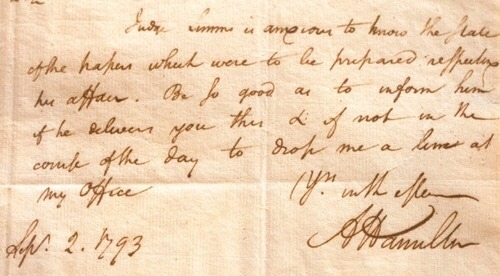 Judge Simms is anxious to know the State
of the papers which were to be prepared respecting
his affair. Be so good as to inform him
if he delivers you this & if not in the
course of the day to drop me a line at
my Office
Yrs with esteem
Sep. 2. 1793
A Hamilton